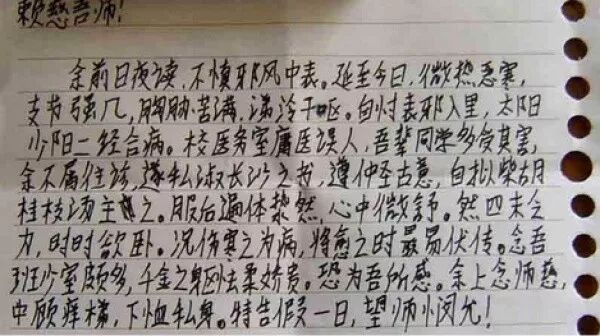 赖慈吾师!
余前日夜读,不慎邪风中表。延至今日,微热恶寒,
支节强几,胸胁苦满,涕泠干呕。自忖表邪入里,太阳
少阳二经合病。校医务室庸医误人,吾辈同学多受其害,
余不屑往诊,遂私淑长沙之书,遵仲圣古意,自拟柴胡
桂枝汤主之。服后遍体漐然,心中微舒。然四末乏
力,时时欲卧。况伤寒之为病,将愈之时最易伏传。念吾
班少室颇多,千金之躯怯柔娇贵。恐为吾所感。余上念师慈,
中顾梓,下恤私身。特告假一日,望师悯允!